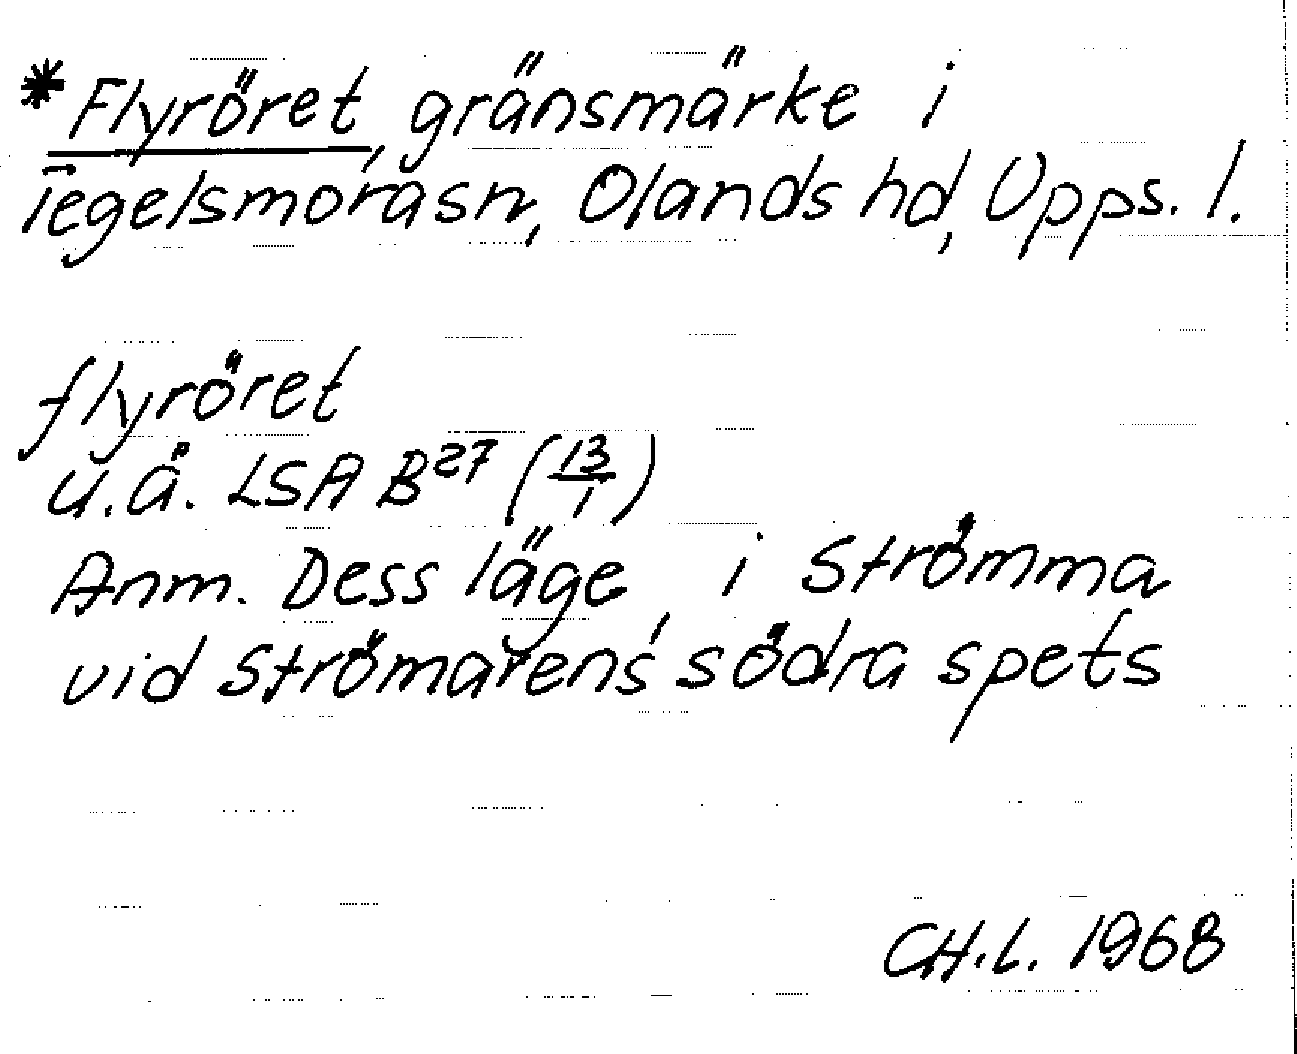 * Flyröret, gränsmärke i
Tegelsmora sn, Olands hd, Upps. l.
flyröret
u.å. LSA B²⁷ (13/1)
Anm. Dess läge, i Strömma
vid Strömarens södra spets
CH.L. 1968